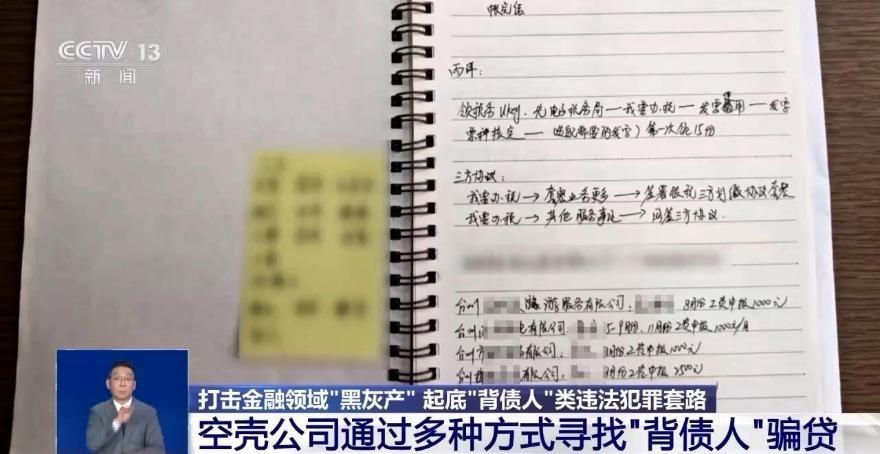 CCTV 13
新闻
两年:
领税务Ukey.先电子税务局—我要办税—发票使用—发票
票种核定—选取需要的发票)第一次领15份
三方协议:
我要办税→套餐业务更多→签署银税三方划缴协议套餐
我要办税→其他服务事项→网签三方协议.
台州 旅游服务有限公司: 8月份工资申报1000元/
台州 电有限公司. 5-9月份、11月份工资申报1000元/月
台州市 有限公司: 月份工资申报1000元
台州 有限公司: 8月份工资申报2500元
打击金融领域"黑灰产" 起底"背债人"类违法犯罪套路
空壳公司通过多种方式寻找"背债人"骗贷